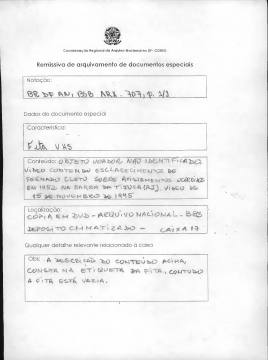 Coordenação Regional do Arquivo Nacional no DF- COREG
Remissiva de arquivamento de documentos especiais
Notação:
BR DF AN, BSB ARX. 707, p. 2/2
Dados do documento especial
Característica:
Fita VHS
Conteúdo: OBJETO VOADOR NÃO IDENTIFICADO
VÍDEO CONTENDO ESCLARECIMENTOS DE
FERNANDO CLETO SOBRE AVISTAMENTOS OCORRIDOS
EM 1952 NA BARRA DA TIJUCA (RJ). VÍDEO DE
15 DE NOVEMBRO DE 1995
Localização:
CÓPIA EM DVD - ARQUIVO NACIONAL - BSB
DEPÓSITO CLIMATIZADO - CAIXA 17
Qualquer detalhe relevante relacionado à caixa
Obs: A DESCRIÇÃO DO CONTEÚDO ACIMA,
CONSTA NA ETIQUETA DA FITA, CONTUDO
A FITA ESTÁ VAZIA.